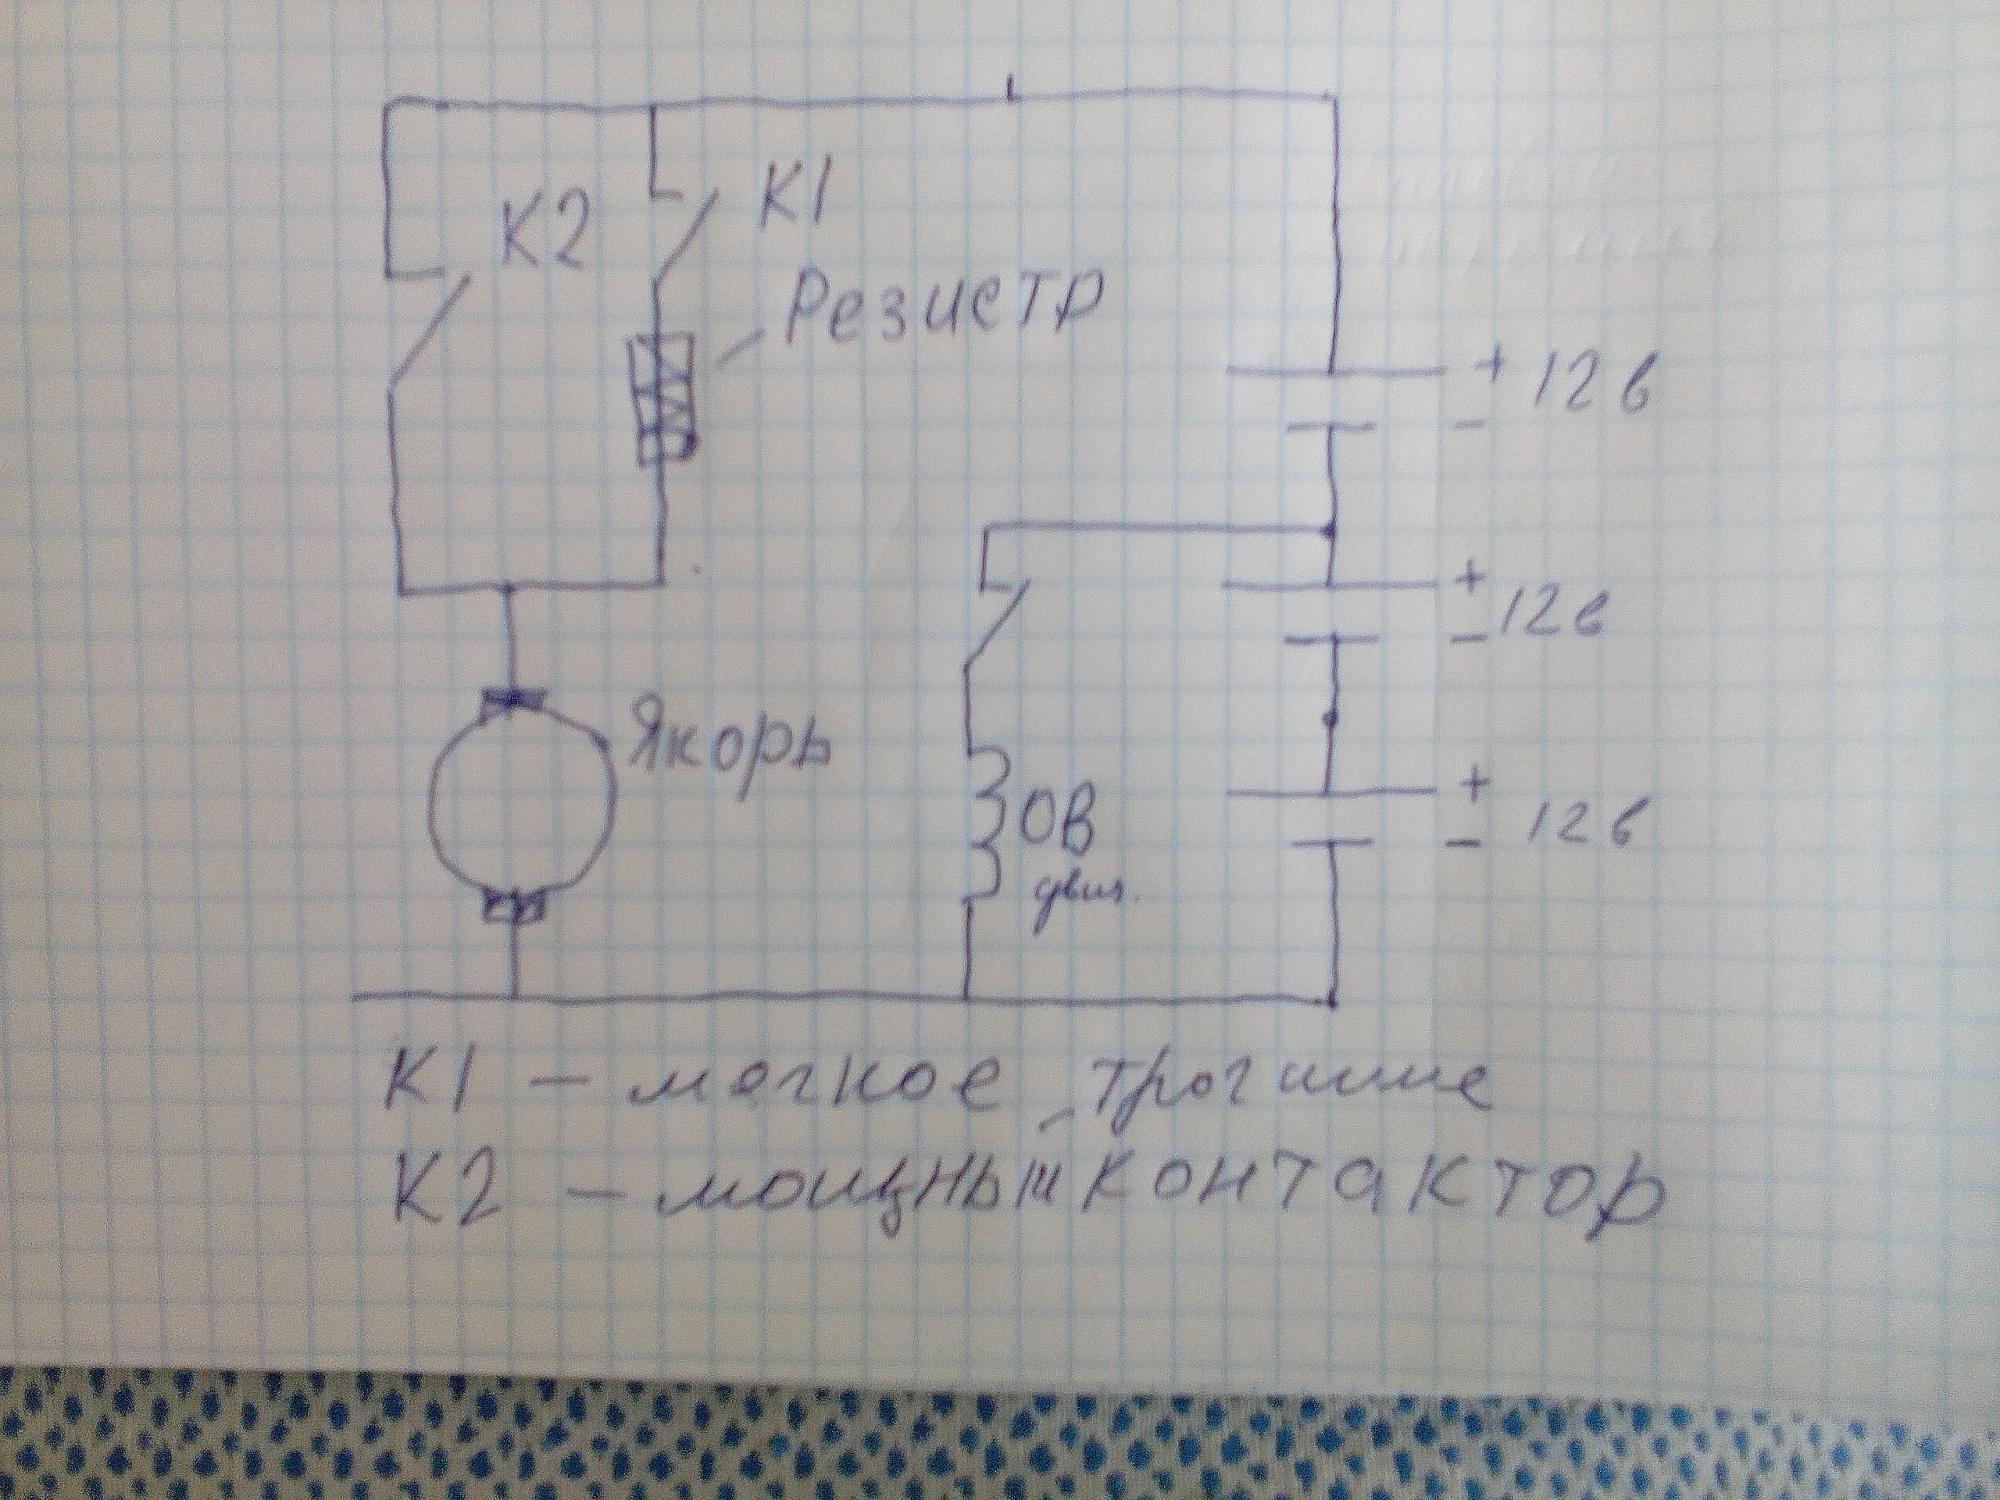 К2
К1
Резистр
+ 12 в
-
+
- 12 в
Якорь
+
- 12 в
ОВ
двиг.
К1 – мягкое трогание
К2 – мощный контактор